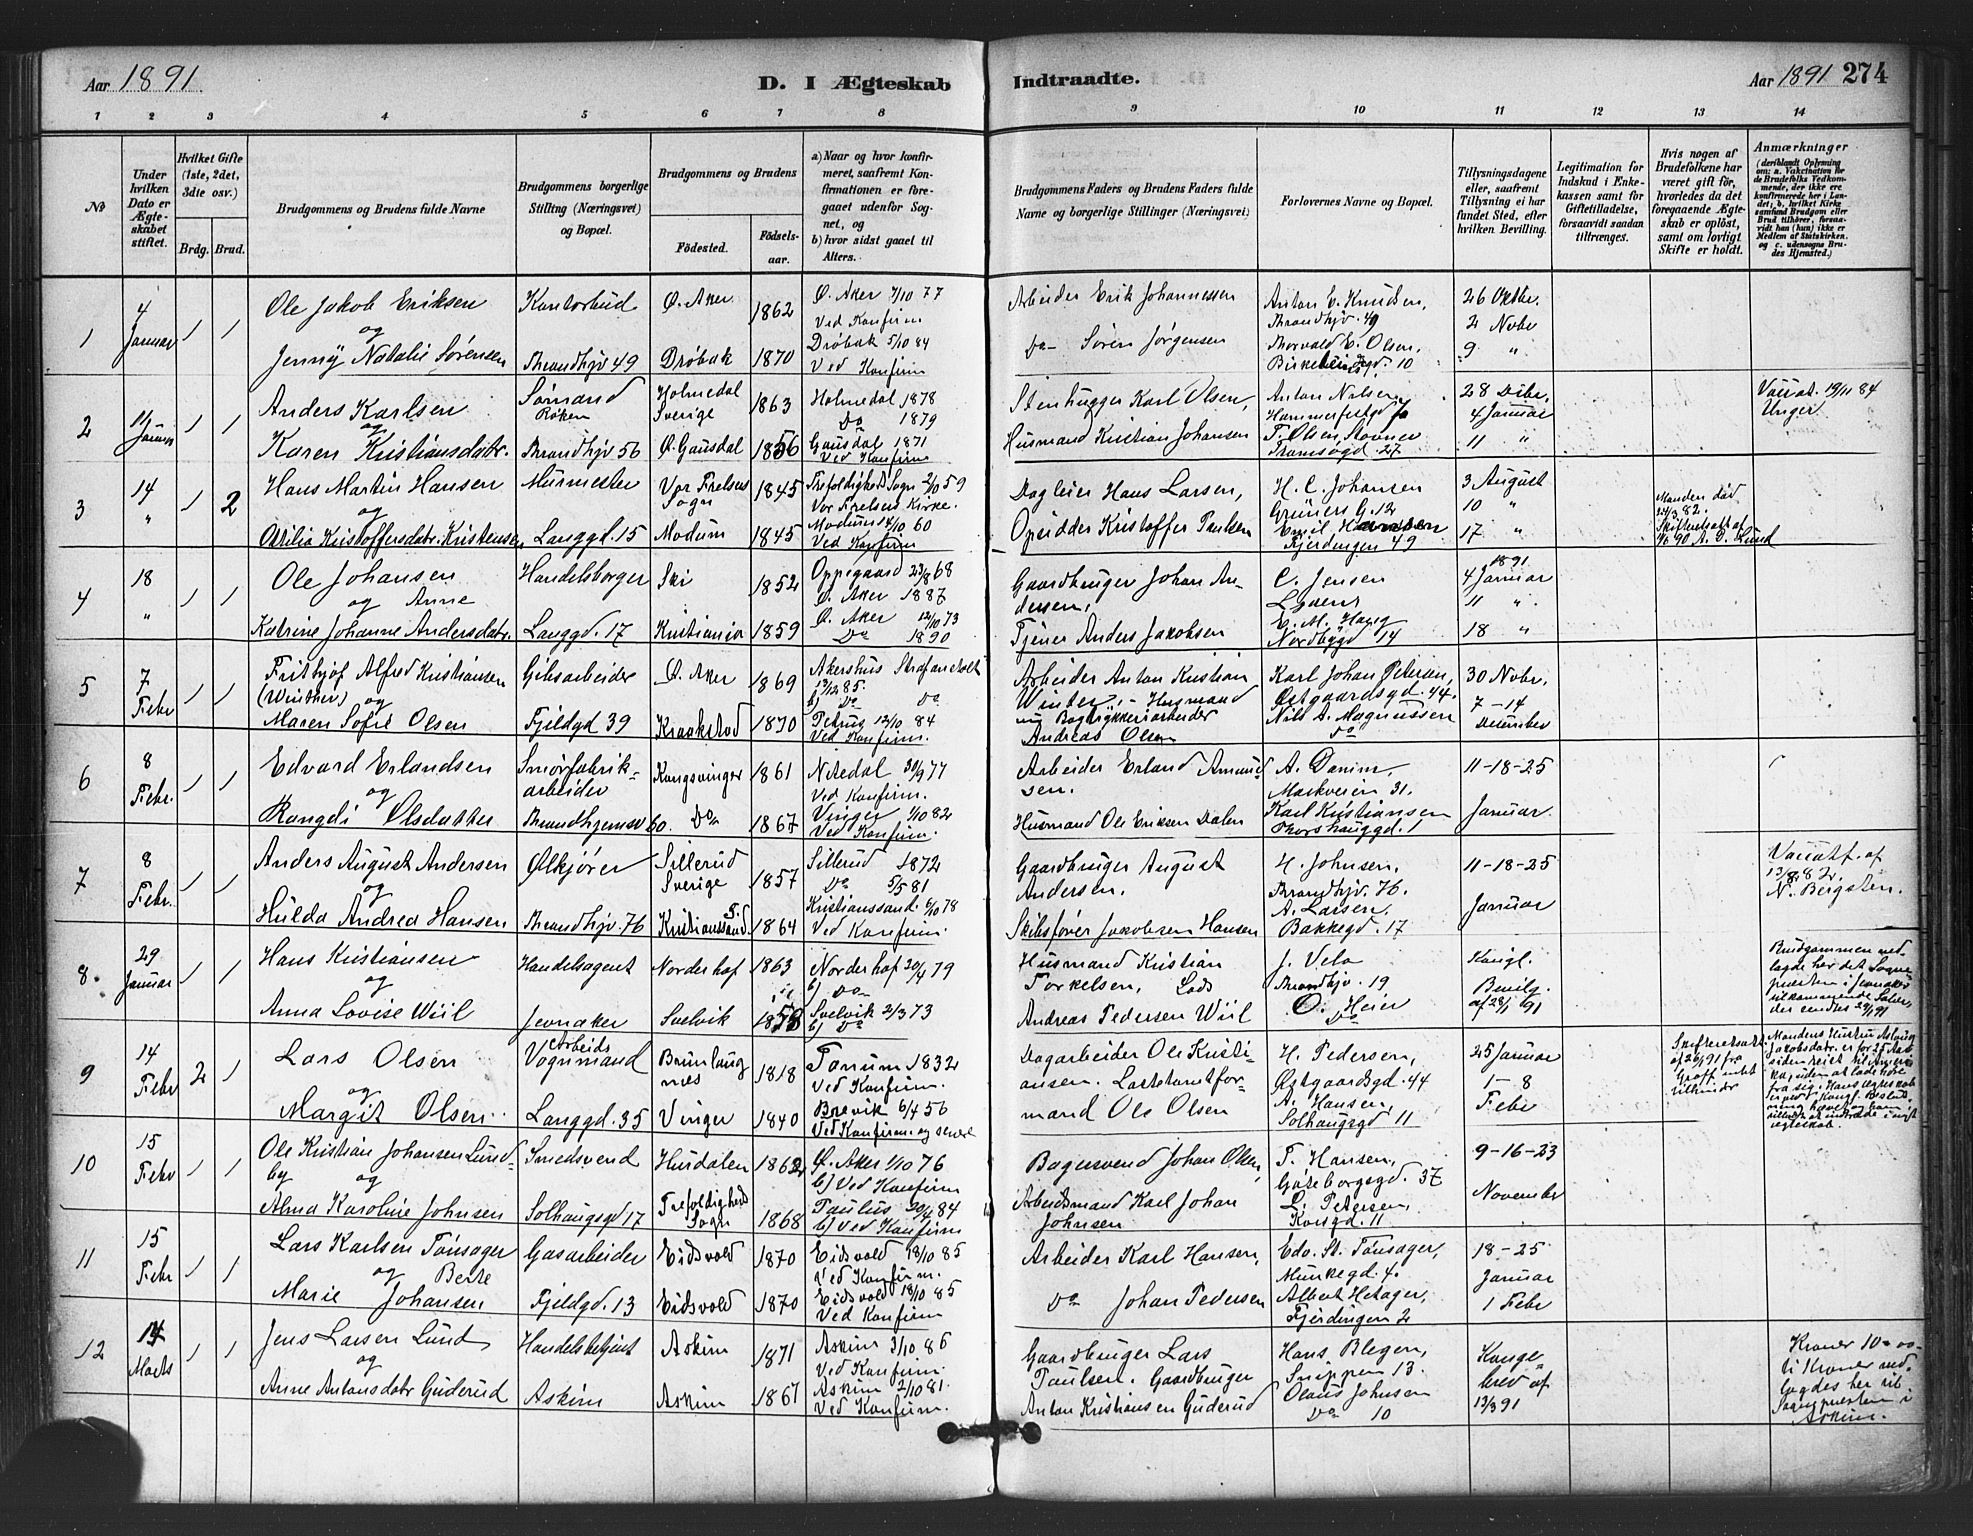 Aar 1891.
D. I Ægteskab
Indtraadte.
Aar 1891 274
1 2 3 4 5 6 7 8
9 10 11 12 13 14
No
Under hvilken Dato er Ægteskabet stiftet.
Hvilket Gifte (1ste, 2det, 3die osv.)
Brdg. Brud.
Brudgommens og Brudens fulde Navne
Brudgommens borgerlige Stilling (Næringsvei) og Bopæl.
Brudgommens og Brudens
Fødested.
Fødsels-aar.
a) Naar og hvor konfirmeret, saafremt Konfirmationen er foregaaet udenfor Sognet, og
b) hvor sidst gaaet til Alters.
Brudgommens Faders og Brudens Faders fulde Navne og borgerlige Stillinger (Næringsvei)
Forlovernes Navne og Bopæl.
Tillysningsdagene eller, saafremt Tillysning ei har fundet Sted, efter hvilken Bevilling.
Legitimation for Indskud i Enkekassen samt for Giftetilladelse, forsaavidt saadan tiltrænges.
Hvis nogen af Brudefolkene har været gift før, hvorledes da det foregaaende Ægteskab er opløst, samt om lovligt Skifte er holdt.
Anmærkninger
(deriblandt Oplysning om: a. Vakcination for de Brudefolks Vedkommende, der ikke ere konfirmerede her i Landet; b. hvilket Kirkesamfund Brudgom eller Brud tilhører, forsaavidt han (hun) ikke er Medlem af Statskirken, og c. udensogns Brudes Hjemsted.)
1
4 Januar
1 1
Ole Jakob Eriksen
og
Jenny Natalie Sørensen
Kontorbud
Throndhjv 49
Ø. Aker 1862
Drøbak 1870
Ø. Aker 7/10 77
Ved Konfirm.
Drøbak 5/10 84
Ved Konfirm
Arbeider Erik Johannessen
Do Søren Jørgensen
Anton E. Knudsen,
Throndhjv. 49
Thorvald E. Olsen,
Birkebeinergd. 10
26 Oktbr.
2 Novbr
9 "
2
11 Januar
1 1
Anders Karlsen
og
Karen Kristiansdatr.
Sømand
Røken
Throndhjv 56
Holmedal
Sverige 1863
Ø. Gausdal 1856
Holmedal 1878
Do 1879
Gausdal 1871
Ved Konfirm
Stenhugger Karl Olsen,
Husmand Kristian Johansen
Anton Nilsen
Hammerfestgd
T. Olsen Stovner
Tromsøgd. 27
28 Dcbr.
4 Januar
11 "
Vaccat. 19/11 84
Unger
3
14 "
1 2
Hans Martin Hansen
og
Ottilia Kristoffersdatr. Kristensen
Murmester
Langgd. 15
Vor Frelsers
Sogn 1845
Modum 1845
Trefoldigheds Sogn 2/10 59
Vor Frelsers Kirke.
Modum 14/10 60
Ved Konfirm
Dagleier Hans Larsen,
Opsidder Kristoffer Paulsen
H. C. Johansen
Grüners G. 12
Emil Hansen
Fjerdingen 49
3 August
10 "
17 "
Manden død
24/3 82.
Skifteattest af
A. D. Lund
4
18 "
1 1
Ole Johansen
og Anne
Katrine Johanne Andersdatr.
Handelsborger
Langgd. 17
Ski 1852
Kristiania 1859
Oppegaard 23/8 68
Ø. Aker 1887
Ø. Aker 12/10 73
Do 1890
Gaardbruger Johan An-
dersen,
Tjener Anders Jakobsen
C. Jensen
E. M. Haug
Nordbygd 14
1891
4 Januar
11 "
18 "
5
7 Febr
1 1
Frithjof Alfred Kristiansen
(Winther) og
Maren Sofie Olsen
Gibsarbeider
Fjeldgd 39
Ø. Aker 1869
Kraakstad 1870
Akershus Strafanstalt
13/12 85.
b) Do Do
Petrus 12/10 84
Ved Konfirm.
Arbeider Anton Kristian
Winter, - Husmand
nu Bogtrykkeriarbeider
Andreas Olsen
Karl Johan Petersen,
Østgaardsgd. 44.
Nils A. Magnussen
Do
30 Novbr.
7 - 14
December
6
8 Febr.
1 1
Edvard Erlandsen
og
Rangdi Olsdatter
Smørfabrik-
arbeider
Throndhjemsv 60.
Kongsvinger 1861
Do 1867
Nitedal 30/9 77
Ved Konfirm.
Vinger 1/10 82
Ved Konfirm.
Arbeider Erland Amund
sen.
Husmand Ole Eriksen Dalen
A. Danim,
Markveien 31.
Karl Kristiansen
Thorshauggd. 1
11-18-25
Januar
7
8 Febr.
1 1
Anders August Andersen
og
Hulda Andrea Hansen
Ølkjører
Throndhjv. 76
Sillerud
Sverige 1857
Kristianssand 1864
Sillerud 1872
Do 5/5 81
Kristianssand. 6/10 78
Ved Konfirm.
Gaardbruger August
Andersen.
Skibsfører Jakobsen Hansen
H. Johnsen,
Throndhjv. 76.
A. Larsen,
Bakkegd. 17
11-18-25
Januar
Vaccatt. af
13/8 82.
N. Bergsten.
8.
29 Januar
1 1
Hans Kristiansen
og
Anna Lovise Wiil
Handelsagent
Jevnaker
Norderhof 1863
Svelvik 1858
Norderhof 20/4 79
b) Do
Svelvik 2/3 73
b) Do
Husmand Kristian
Torkelsen, Lods
Andreas Pedersen Wiil
J. Velo
Throndhjv. 19
O. Heier
Do
Kongl.
Bevilg.
af 28/1 91
Brudgommen ned-
lagde her det Sogne-
presten i Jevnaker
tilkommende Salær,
der sendtes 29/1 91
9
14 Febr
2 1
Lars Olsen
og
Margit Olsen
Arbeids
Vognmand
Langgd. 35
Brunlaug
næs 1818
Vinger 1840
Tanum 1832
Ved Konfirm.
Brevik 6/4 56
Ved Konfirm. og senere
Dagarbeider Ole Kristi-
ansen. Lasteterntfor-
mand Ole Olsen
H. Pedersen,
Østgaardsgd. 44
A. Hansen,
Solhaugsgd 11
25 Januar
1-8
Febr
Skifteretsatt.
af 26/1 91 fra
Graff intet
til hinder
Mandens Hustru Aslaug
Jakobsdatr. er for 25 Aar
siden reist til Ameri-
ka, uden at lade høre
fra sig. Hans Ægteskab
ægteskab.
10
15 Febr
1 1
Ole Kristian Johansen Lund-
by og
Alma Karoline Johnsen
Smedsvend
Solhaugsgd 17
Hurdalen 1862
Trefoldigheds
Sogn 1868
Ø. Aker 1/10 76
b) Ved Konfirm
Paulus 20/4 84
b) Ved Konfirm
Bagersvend Johan Olsen,
Arbeidsmand Karl Johan
Johnsen
T. Hansen,
Gøteborgsgd. 37
L. Petersen,
Korsgd. 11
9-16-23
November
11
15 Febr
1 1
Lars Karlsen Tønsager
og Berte
Marie Johansen
Gasarbeider
Fjeldgd. 13
Eidsvold 1870
Eidsvold 1870
Eidsvold 18/10 85
Ved Konfirm.
Eidsvold 18/10 85
Ved Konfirm
Arbeider Karl Hansen,
Do Johan Pedersen
Edv. St. Tønsager,
Munkegd. 4.
Albert Hexager,
Fjerdingen 2
18-25
Januar
1 Febr
12
14 Marts
1 1
Jens Larsen Lund
og
Anne Antonsdatr Guderud
Handelsbetjent
Askim
Askim 1871
Askim 1867
Askim 3/10 86
Ved Konfirm.
Askim 2/10 81.
Ved Konfirm.
Gaardbruger Lars
Paulsen. Gaardbruger
Anton Kristiansen Guderud
Hans Blegen,
Snippen 13.
Olaus Johnsen
Do 10
Konge-
brev af
13/3 91
Kroner 10-00-
ti Kroner ned-
lagdes her til
Sognepresten i
Askim.